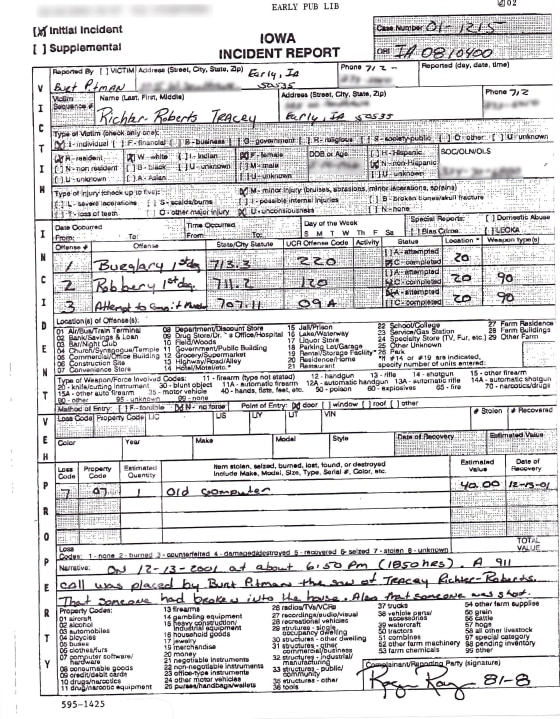 EARLY PUB LIB
02
[X] Initial Incident
[ ] Supplemental
IOWA
INCIDENT REPORT
Case Number 01-1215
ORI IA 0810400
Reported By [ ] VICTIM Address (Street, City, State, Zip) Early, IA Phone 712- Reported (day, date, time)
Burt Pitman 50535
Victim Sequence # Name (Last, First, Middle) Address (Street, City, State, Zip) Phone 712
Richter-Roberts TRACEY Early, IA 50535
Type of Victim (check only one):
[X] I - individual [ ] F - financial [ ] B - business [ ] G - government [ ] R - religious [ ] S - society/public [ ] O - other [ ] U - unknown
[X] R - resident [X] W - white [ ] I - Indian [X] F - female DOB or Age [ ] H - Hispanic SOC/OLN/OLS
[ ] N - non resident [ ] B - black [ ] U - unknown [ ] M - male [X] N - non-Hispanic
[ ] U - unknown [ ] A - Asian [ ] U - unknown [ ] U - unknown
Type of Injury (check up to five): [X] M - minor injury (bruises, abrasions, minor lacerations, sprains)
[ ] L - severe lacerations [ ] S - scalds/burns [ ] I - possible internal injuries [ ] B - broken bones/skull fracture
[ ] T - loss of teeth [ ] O - other major injury [X] U - unconsciousness [ ] N - none
Date Occurred Time Occurred Day of the Week Special Reports: [ ] Domestic Abuse
From: To: From: To: S M T W Th F Sa [ ] Bias Crime [ ] LEOKA
Offense # Offense State/City Statute UCR Offense Code Activity Status Location * Weapon type(s)
1 Burglary 1st deg 713.3 220 [ ] A - attempted [X] C - completed 20
2 Robbery 1st deg. 711.2 120 [ ] A - attempted [X] C - completed 20 90
3 Attempt to Commit Murder 707.11 09A [X] A - attempted [ ] C - completed 20 90
Location(s) of Offense(s):
01 Air/Bus/Train Terminal 08 Department/Discount Store 15 Jail/Prison 22 School/College 27 Farm Residence
02 Bank/Savings & Loan 09 Drug Store/Dr.'s Office/Hospital 16 Lake/Waterway 23 Service/Gas Station 28 Farm Buildings
03 Bar/Night Club 10 Field/Woods 17 Liquor Store 24 Specialty Store (TV, Fur, etc.) 29 Other Farm
04 Church/Synagogue/Temple 11 Government/Public Building 18 Parking Lot/Garage 25 Other Unknown
05 Commercial/Office Building 12 Grocery/Supermarket 19 Rental/Storage Facility* 26 Park
06 Construction Site 13 Highway/Road/Alley 20 Residence/Home *If #14 or #19 are indicated,
07 Convenience Store 14 Hotel/Motel/etc.* 21 Restaurant specify number of units entered:
Type of Weapon/Force Involved Codes: 11 - firearm (type not stated) 12 - handgun 13 - rifle 14 - shotgun 15 - other firearm
20 - knife/cutting instrument 30 - blunt object 11A - automatic firearm 12A - automatic handgun 13A - automatic rifle 14A - automatic shotgun
15A - other auto firearm 35 - motor vehicle 40 - hands, fists, feet, etc. 50 - poison 60 - explosives 65 - fire 70 - narcotics/drugs
90 - other 95 - unknown 99 none
Method of Entry: [ ] F - forcible [X] N - no force Point of Entry: [X] door [ ] window [ ] roof [ ] other
Loss Code Property Code LIC LIS LIY LIT VIN # Stolen # Recovered
Color Year Make Model Style Date of Recovery Estimated Value
Loss Code Property Code Estimated Quantity Item stolen, seized, burned, lost, found, or destroyed Include Make, Model, Size, Type, Serial #, Color, etc. Estimated Value Date of Recovery
7 07 1 Old Computer 40.00 12-13-01
Loss Codes: 1 - none 2 - burned 3 - counterfeited 4 - damaged/destroyed 5 - recovered 6 - seized 7 - stolen 8 - unknown TOTAL VALUE
Narrative: ON 12-13-2001 at about 6:50 PM (1850 hrs). A 911
call was placed by Burt Pitman the son of TRACEY Richter-Roberts.
That someone had broken into the house. Also that someone was shot.
Property Codes:
01 aircraft
02 alcohol
03 automobiles
04 bicycles
05 buses
06 clothes/furs
07 computer software/hardware
08 consumable goods
09 credit/debit cards
10 drugs/narcotics
11 drug/narcotic equipment
13 firearms
14 gambling equipment
15 heavy construction/industrial equipment
16 household goods
17 jewelry
19 merchandise
20 money
21 negotiable instruments
22 non-negotiable instruments
23 office-type instruments
24 other motor vehicles
25 purses/handbags/wallets
26 radios/TVs/VCRs
27 recordings/audio/visual
28 recreational vehicles
29 structures - single occupancy dwelling
30 structures - other dwelling
31 structures - other commercial/business
32 structures - industrial/manufacturing
33 structures - public/community
35 structures - other
36 tools
37 trucks
38 vehicle parts/accessories
39 watercraft
50 tractors
51 combines
52 other farm machinery
53 farm chemicals
54 other farm supplies
55 grain
56 cattle
57 hogs
58 all other livestock
97 special category
98 pending inventory
99 other
Complainant/Reporting Party (signature)
81-8
595-1425